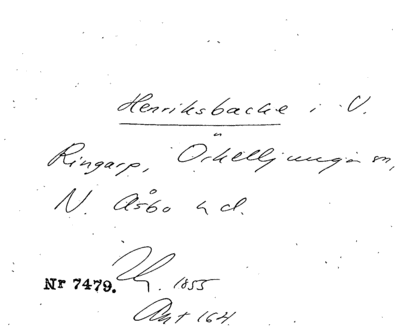 Henriksbacke i V.
Ringarp, Örkelljunga sn,
N. Åsbo hd.
Nr 7479. 1855
Ant 164